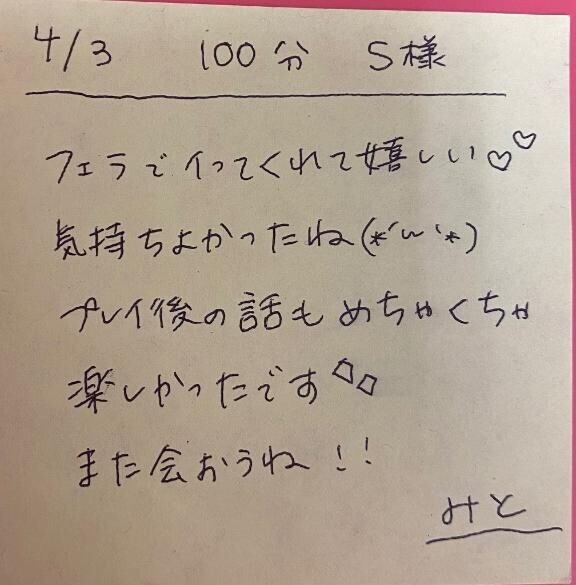 4/3 100分 S様
フェラでイってくれて嬉しい♡♡
気持ちよかったね(*´ω`*)
プレイ後の話もめちゃくちゃ
楽しかったです◇◇
また会おうね！！
みと